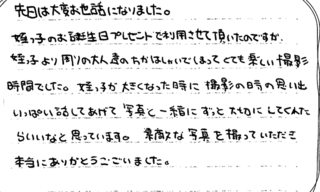 先日は大変お世話になりました。
姪っ子のお誕生日プレゼントで利用させて頂いたのですが、
姪っ子より周りの大人達の方がはしゃいでしまってとても楽しい撮影
時間でした。姪っ子が大きくなった時に撮影の時の思い出
いっぱい話してあげて写真と一緒にずっと大切にしてくれた
らいいなと思っています。素敵な写真を撮っていただき
本当にありがとうございました。